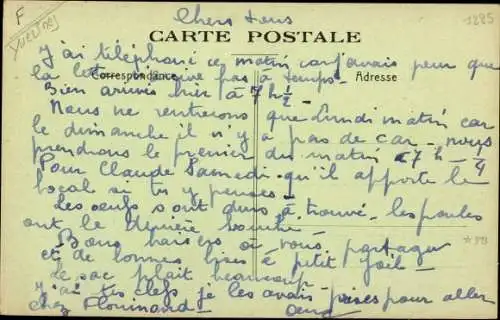 F
(Yvelines)
1285
Chers tous
CARTE POSTALE
J'ai téléphoné ce matin car j'avais peur que
la lettre arrive pas à temps.
Correspondance
Adresse
Bien arrivés hier à 7h 1/2
Nous ne rentrerons que Lundi matin car
le dimanche il n'y a pas de car - nous
prendrons le premier du matin 7h - 1/4
Pour Claude Samedi qu'il apporte le
bocal si tu y penses -
Les oeufs sont durs à trouver les poules
ont le derrière
Bons baisers à vous partager
et de bonnes bises à petit Joël -
Le sac plaît beaucoup -
J'ai les clefs je les avais prises pour aller
chez Flouinard -